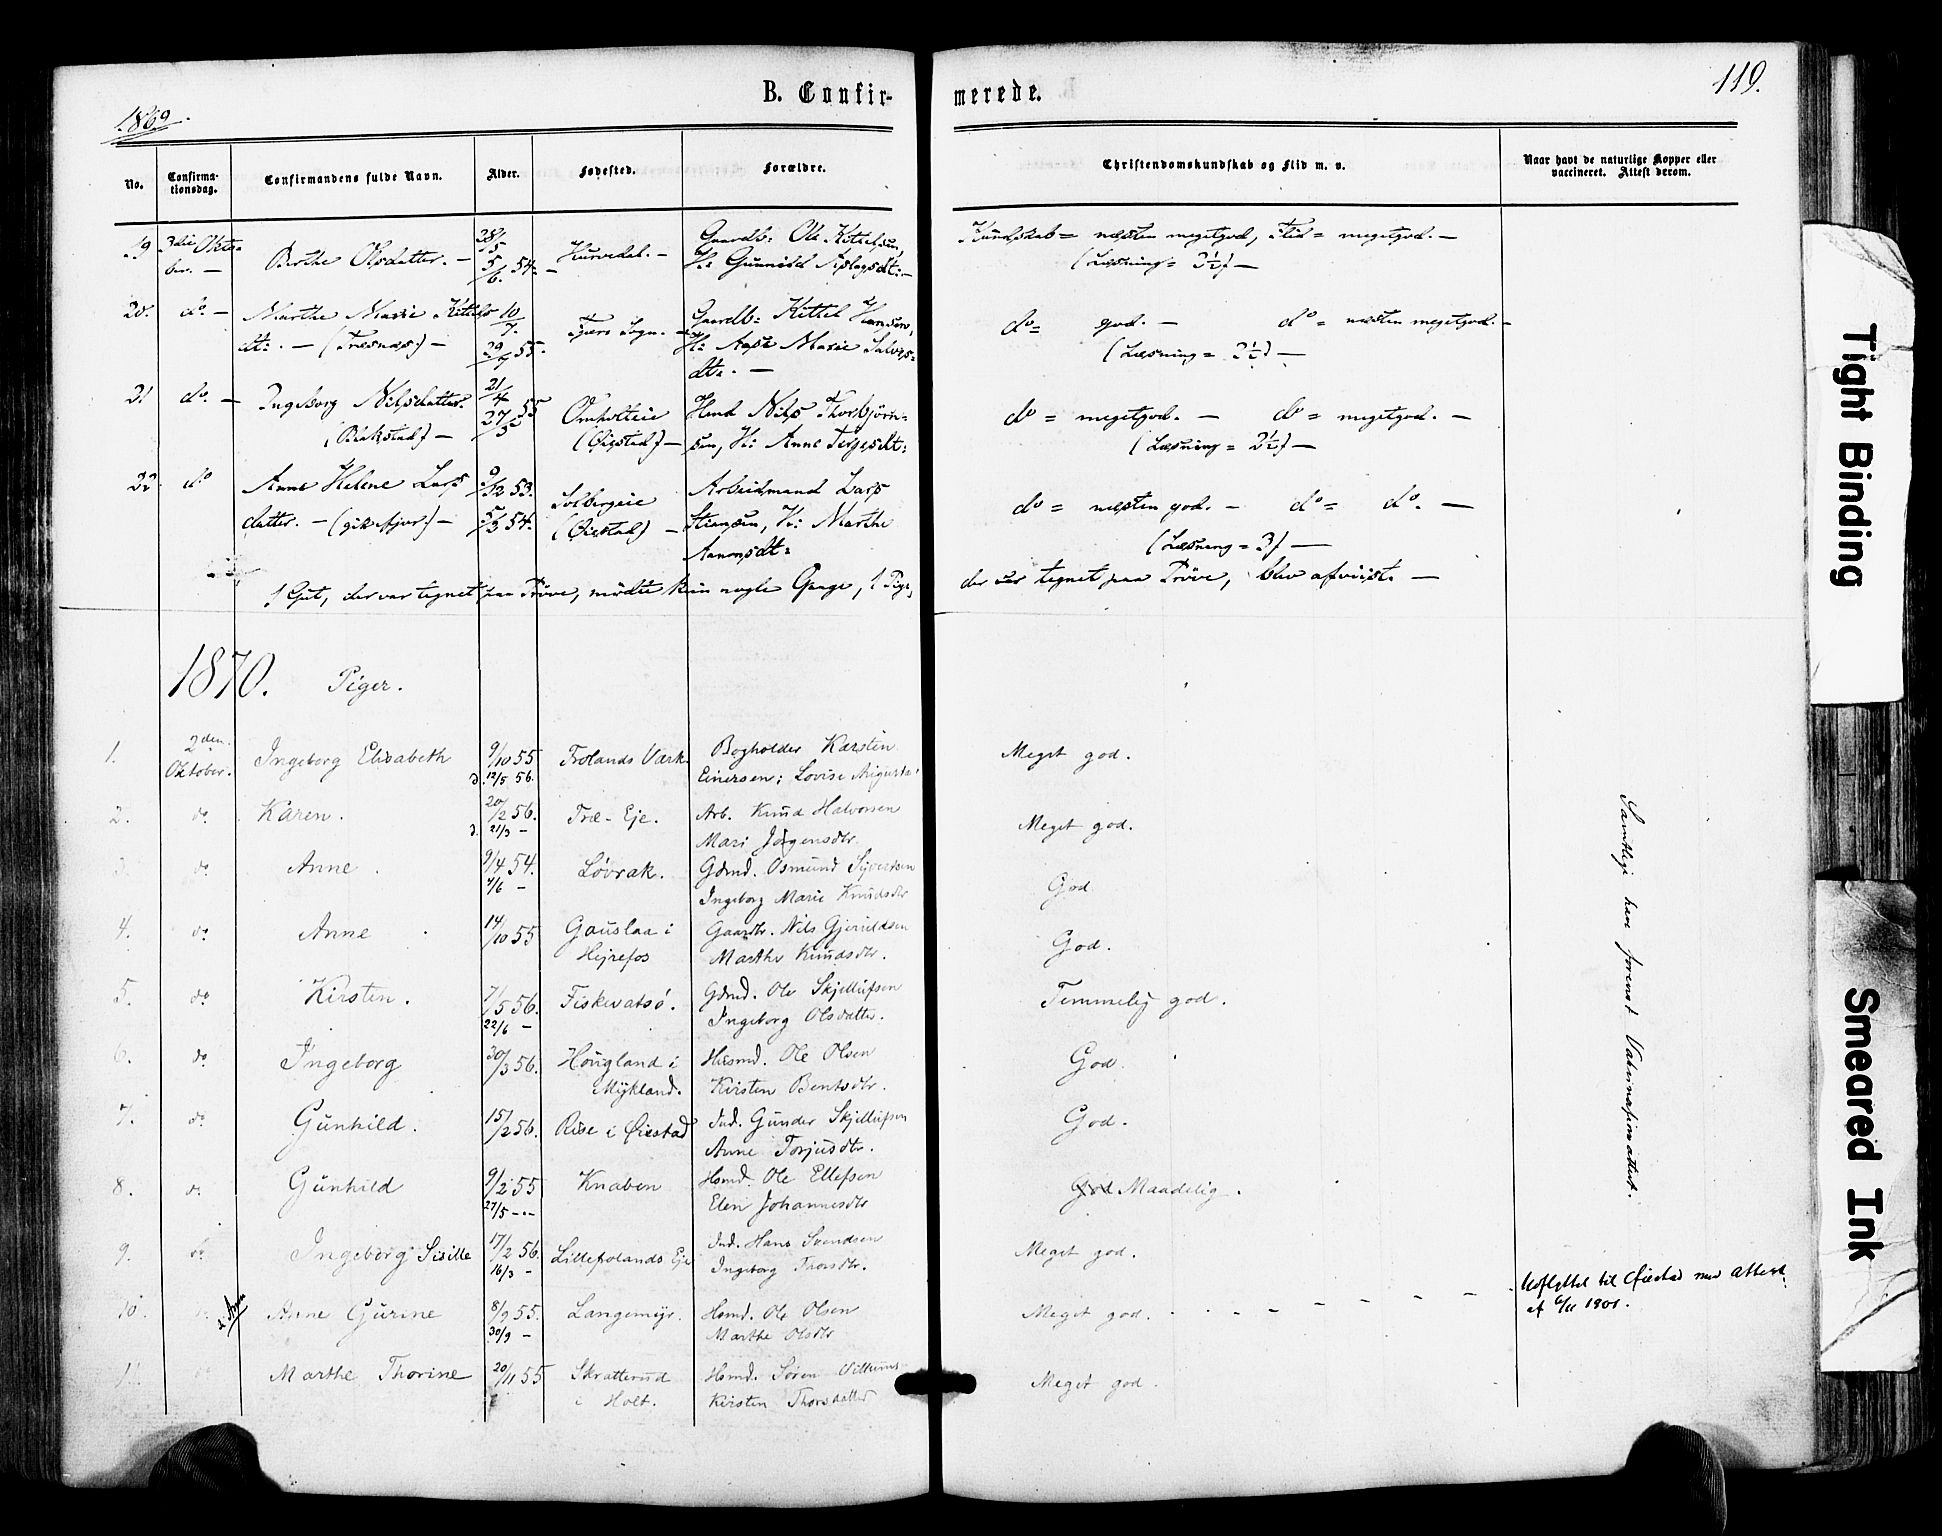 B. Confir-
merede.
119.
1869.
No.
Confirma-
tionsdag.
Confirmandens fulde Navn.
Alder.
Fødested.
Forældre.
Christendomskundskab og Flid m. v.
Naar havt de naturlige Kopper eller
vaccineret. Attest derom.
19 3die Okto- 28/5 Gaardb: Ole Kittelsen, Kundskab = næsten megetgod, Flid = megetgod. —
ber. — Berthe Olsdatter. — 5/6 54. — Hurvedal. — H: Gunnild Aslagsdt: — (Læsning = 3½) —
20. do. — Marthe Marie Kittels 10/7. Gaardb: Kittel Hansen, do = god. — do = næsten megetgod. —
dt: — (Tresnæs) — 29/7 55. Fjære Sogn. — H: Aase Marie Salves= (Læsning = 2½) —
dt:. —
21 do. — Ingeborg Nilsdatter. 21/4 55 Omholteie Huusmd Nils Thorbjörn= do = megetgod. — do = megetgod. —
(Birkstad) — 27/5 (Øiestad) — sen, H: Anne Terjesdt: (Læsning = 2½) —
22. do Anne Helene Lars 9/12 53. Solbergeie Arbeidsmand Lars do = næsten god. — do = do. —
datter. — (gik ifjor) — 5/3 54. (Øiestad) — Stiansen, H: Marthe (Læsning = 3) —
Aanonsdt:
1 Gut, der var tegnet paa Prøve, mødte kun nogle Gange, 1 Pige, der var tegnet paa Prøve, blev afviist. —
1870. Piger.
1. 2den Ingeborg Elisabeth 9/10 55 Frolands Værk. Bogholder Karsten Meget god.
Oktober. d. 12/5 56. Einersen; Lovise Augusta
2. do Karen. 20/2 56. Træ-Eje. Arb. Knud Halvorsen Meget god.
d. 21/3 — Mari Jørgensdtr.
3. do Anne. 9/4 54. Løvrak. Gdmd. Osmund Syvertsen God
7/6 — Ingeborg Marie Knudsdtr
4. do Anne 14/10 55 Gauslaa i Gaardbr. Nils Gjeruldsen God.
Hejrefos Marthe Knudsdtr.
5. do Kirsten. 7/5 56. Fiskevatsø. Gdmd. Ole Skjellufsen Temmelig god.
22/6 — Ingeborg Olsdatter.
6. do Ingeborg 30/3 56. Hougland i Husmd. Ole Olsen God.
Mykland. Kirsten Bentsdtr.
7. do Gunhild. 15/2 56. Rise i Øiestad Ind. Gunder Skjellufsen God.
Anne Torjusdtr.
8. do Gunhild 9/2 55 Knaben Hsmd. Ole Ellefsen God Maadelig.
27/5 — Elen Johannesdtr
9. do Ingeborg Sisille 17/2 56. Lillefrolands Eje Ind. Hans Svendsen Meget god.
16/3 — Ingeborg Thorsdtr.
10. do Anne Gurine 8/9 55. Langemyr. Hsmd. Ole Olsen Meget god. — — — — — Udflyttet til Øiestad med Attest
30/9 — Marthe Olsdtr af 6/11 1901.
11. do Marthe Thorine 20/11 55 Skratterud Hsmd. Søren Meget god.
i Holt. Kirsten Thorsdatter
Samtlige have forevist Vakcinationsattest.
Tight Binding
Smeared Ink